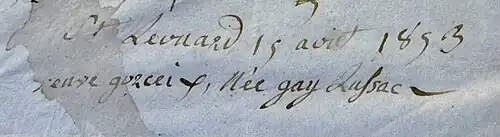 St Leonard 15 avril 1853
veuve gorceix, Née gay Lussac